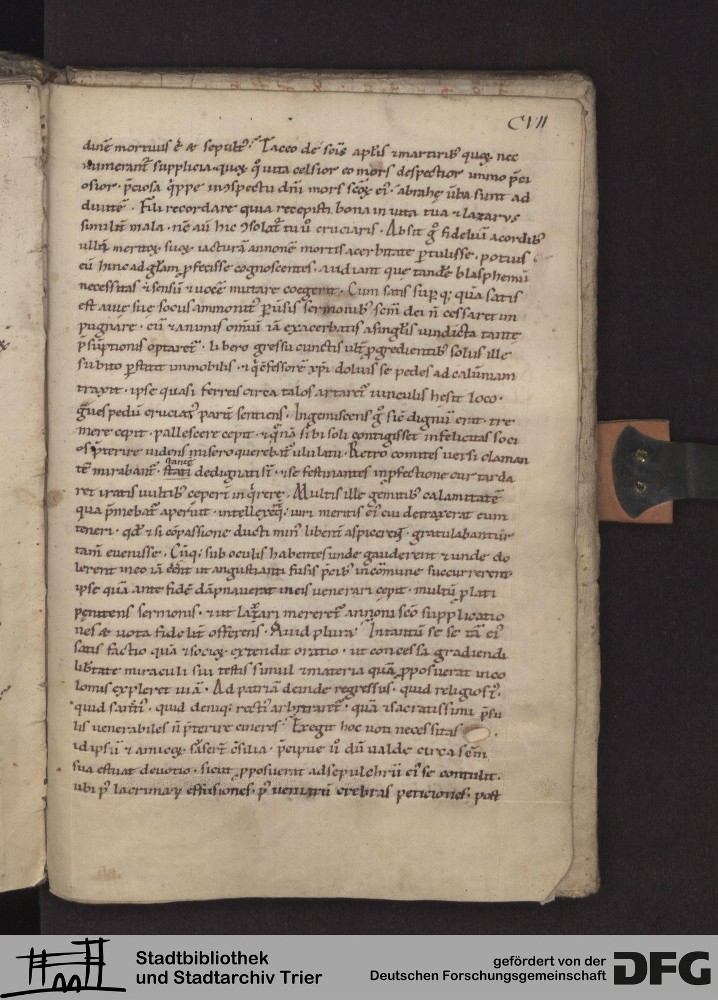 CVII
diuē mortuus ē & sepult᷒. Taceo de scīs aplīs & martirib᷒ quoꝝ nec
numerant᷑ supplicia. quoꝝ qͦ uita celsior eo mors despectior immo p̄ci
osior. p̄ciosa qͥppe in ɔspectu dn̄i mors scōꝝ ei᷒. abrahę ūba sunt ad
diuitē. Fili recordare quia recepisti bona in uita tua & lazarus
similit̄ mala. nc̄ aū hic ɔsolat᷑ tu ū cruciaris. Absit gͦ fideliū a cordib᷒
ullū meritoꝝ suoꝝ iacturā annonē mortis acerbitate ꝑtulisse. potius
eū hinc ad glām ꝓfecisse cognoscentes. Audiant que tandē blasphemū
necessitas & sensū & uocē mutare coegerit. Cum satis suꝑq; quā satis
est aūe sue socius ammonit᷒ ꝑuisis sermonib᷒ scm̄ dei n̄ cessaret im
pugnare. cū & animis omiū iā exacerbatis a singlis uindicta tante
p̄sūptionis optaret᷑. libero gressu cunctis ult̄ ꝓgredientib᷒ solus ille
subito ꝑstitit immobilis. & qͥ c̄fessorē xp̄i doluis se pedes ad calūniam
traxit. ipse quasi ferreis circa talos artaret᷑ uinculis hesit loco.
g̃ue pedū cruciatꝰ parit̄ sentiens. Ingemiscens gͦ sic̄ dignū erat. tre
mere cepit. pallescere cepit. & qͥnā sibi soli contigisset infelicitas soci
os p̄terire uidens misero querebat᷑ ululatu. Retro comites uersi claman
tē mirabant᷑. stare dedignati sͭ. & se festinantes in ꝓfectione cur tarda
ret iratis uultib᷒ ceperͭ inqͥrere. Multis ille gemitib᷒ calamitatē
qua p̄mebat᷑ aperuit. intellexeqͥ; uiri meritis ei᷒ cui detraxerat eum
teneri. qd̄ & si cōpassione ducti min᷒ libent̄ aspicereͭ. gratulabantur
tam̄ euenisse. Cūq; sub oculis habentes unde gauderent & unde do
lerent in eo iā eēnt ut angustianti fusis p̄cib᷒ in cōmune succurrerent.
ipse quā ante fidē dāpnauerat in eis uenerari cepit. multū ꝓlati
penitens sermonis. & ut laxari mereret᷑ annoni scō supplicatio
nes & uota fidelit̄ offerens. Quid plura? Intantū se se tā ei᷒
satis factio quā & socioꝝ extendit oratio. ut concessa gradiendi
lib̄tate miraculi sui testis simul & materia quā ꝓposuerat in co
lonis expleret uiā. Ad patriā deinde regressus. quid religiosi᷒.
quid sancti᷒. quid deniq; recti᷒ arbitraret᷑. quā & sacratissimi p̄su
lis uenerabiles n̄ p̄terire cineres? Exegit hoc uoti necessitas.
id ipsū & amicoꝝ sāserͭ c̄silia. p̄cipue ū dū ualde circa scm̄
sua estuat deuotio. sicut ꝓposuerat ad sepulchrū ei᷒ se contulit.
ubi p᷒ lacrimaꝝ effusiones. p᷒ ueniarū crebras peticiones. post
Stadtbibliothek
und Stadtarchiv Trier
gefördert von der
Deutschen Forschungsgemeinschaft
DFG